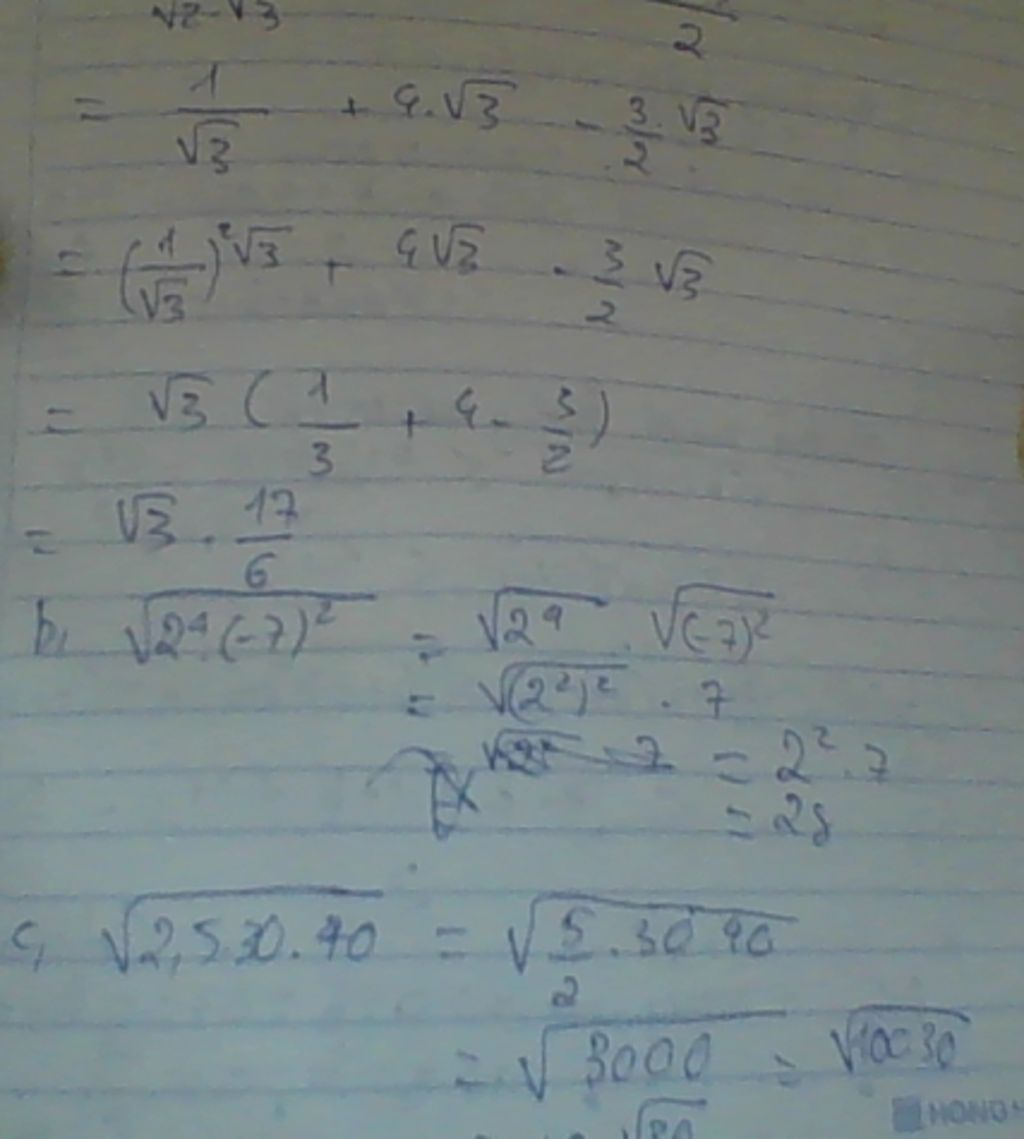 √2 · √3 2
= 1/√3 + 4.√3 - 3/2 . √3
= (1/√3)²√3 + 4√3 - 3/2 √3
= √3 ( 1/3 + 4 - 3/2 )
= √3 . 17/6
b, √2⁴.(-7)² = √2⁴ . √(-7)²
= √(2²)² . 7
= 2² . 7
= 28
c, √2,5 30.40 = √5/2 . 30 40
= √3000 = √100 30
√30